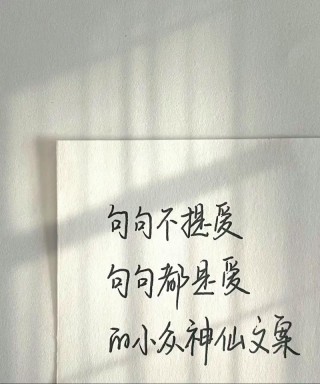 句句不提爱
句句都是爱
的小众神仙文案